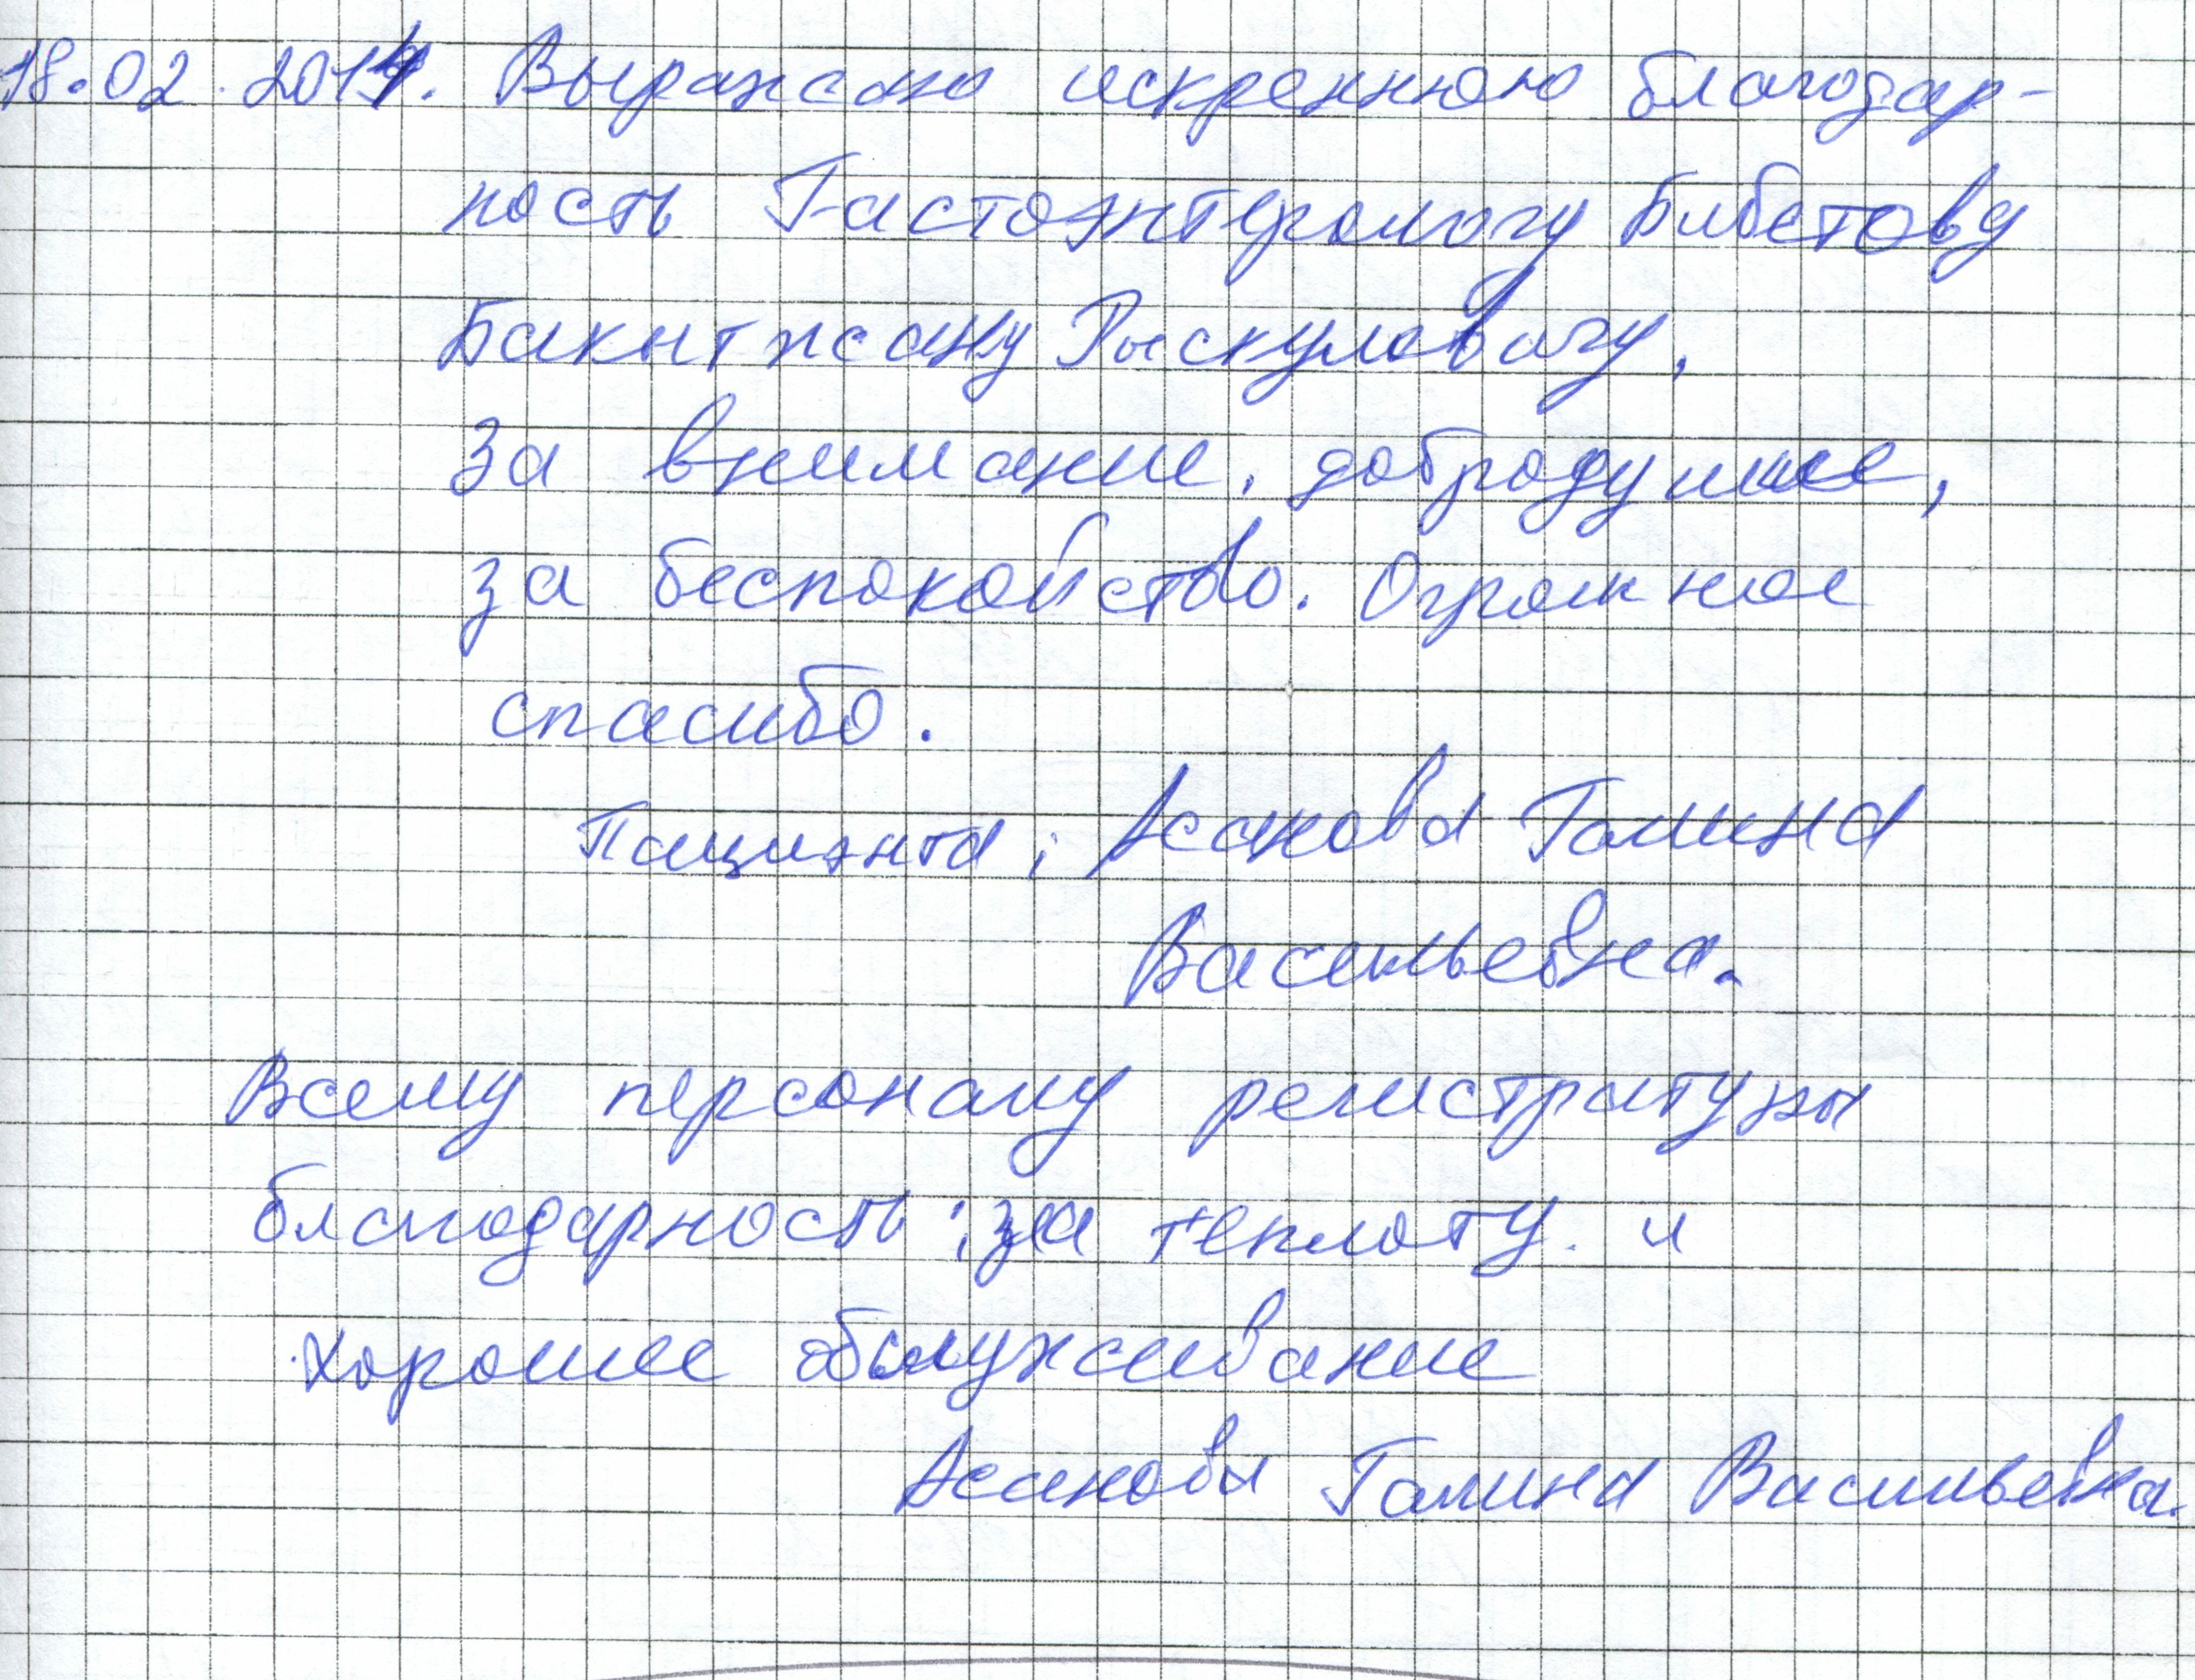 18.02.2014. Выражаю искреннюю благодар-
ность Гастоэнтерологу Бибетову
Бакытжану Рыскуловичу,
за внимание, добродушие,
за беспокойство. Огромное
спасибо.
Пациэнта; Асанова Галина
Васильевна.
Всему персоналу регистратуры
благодарность; за теплоту. и
хорошее обслуживание
Асанова Галина Васильевна.